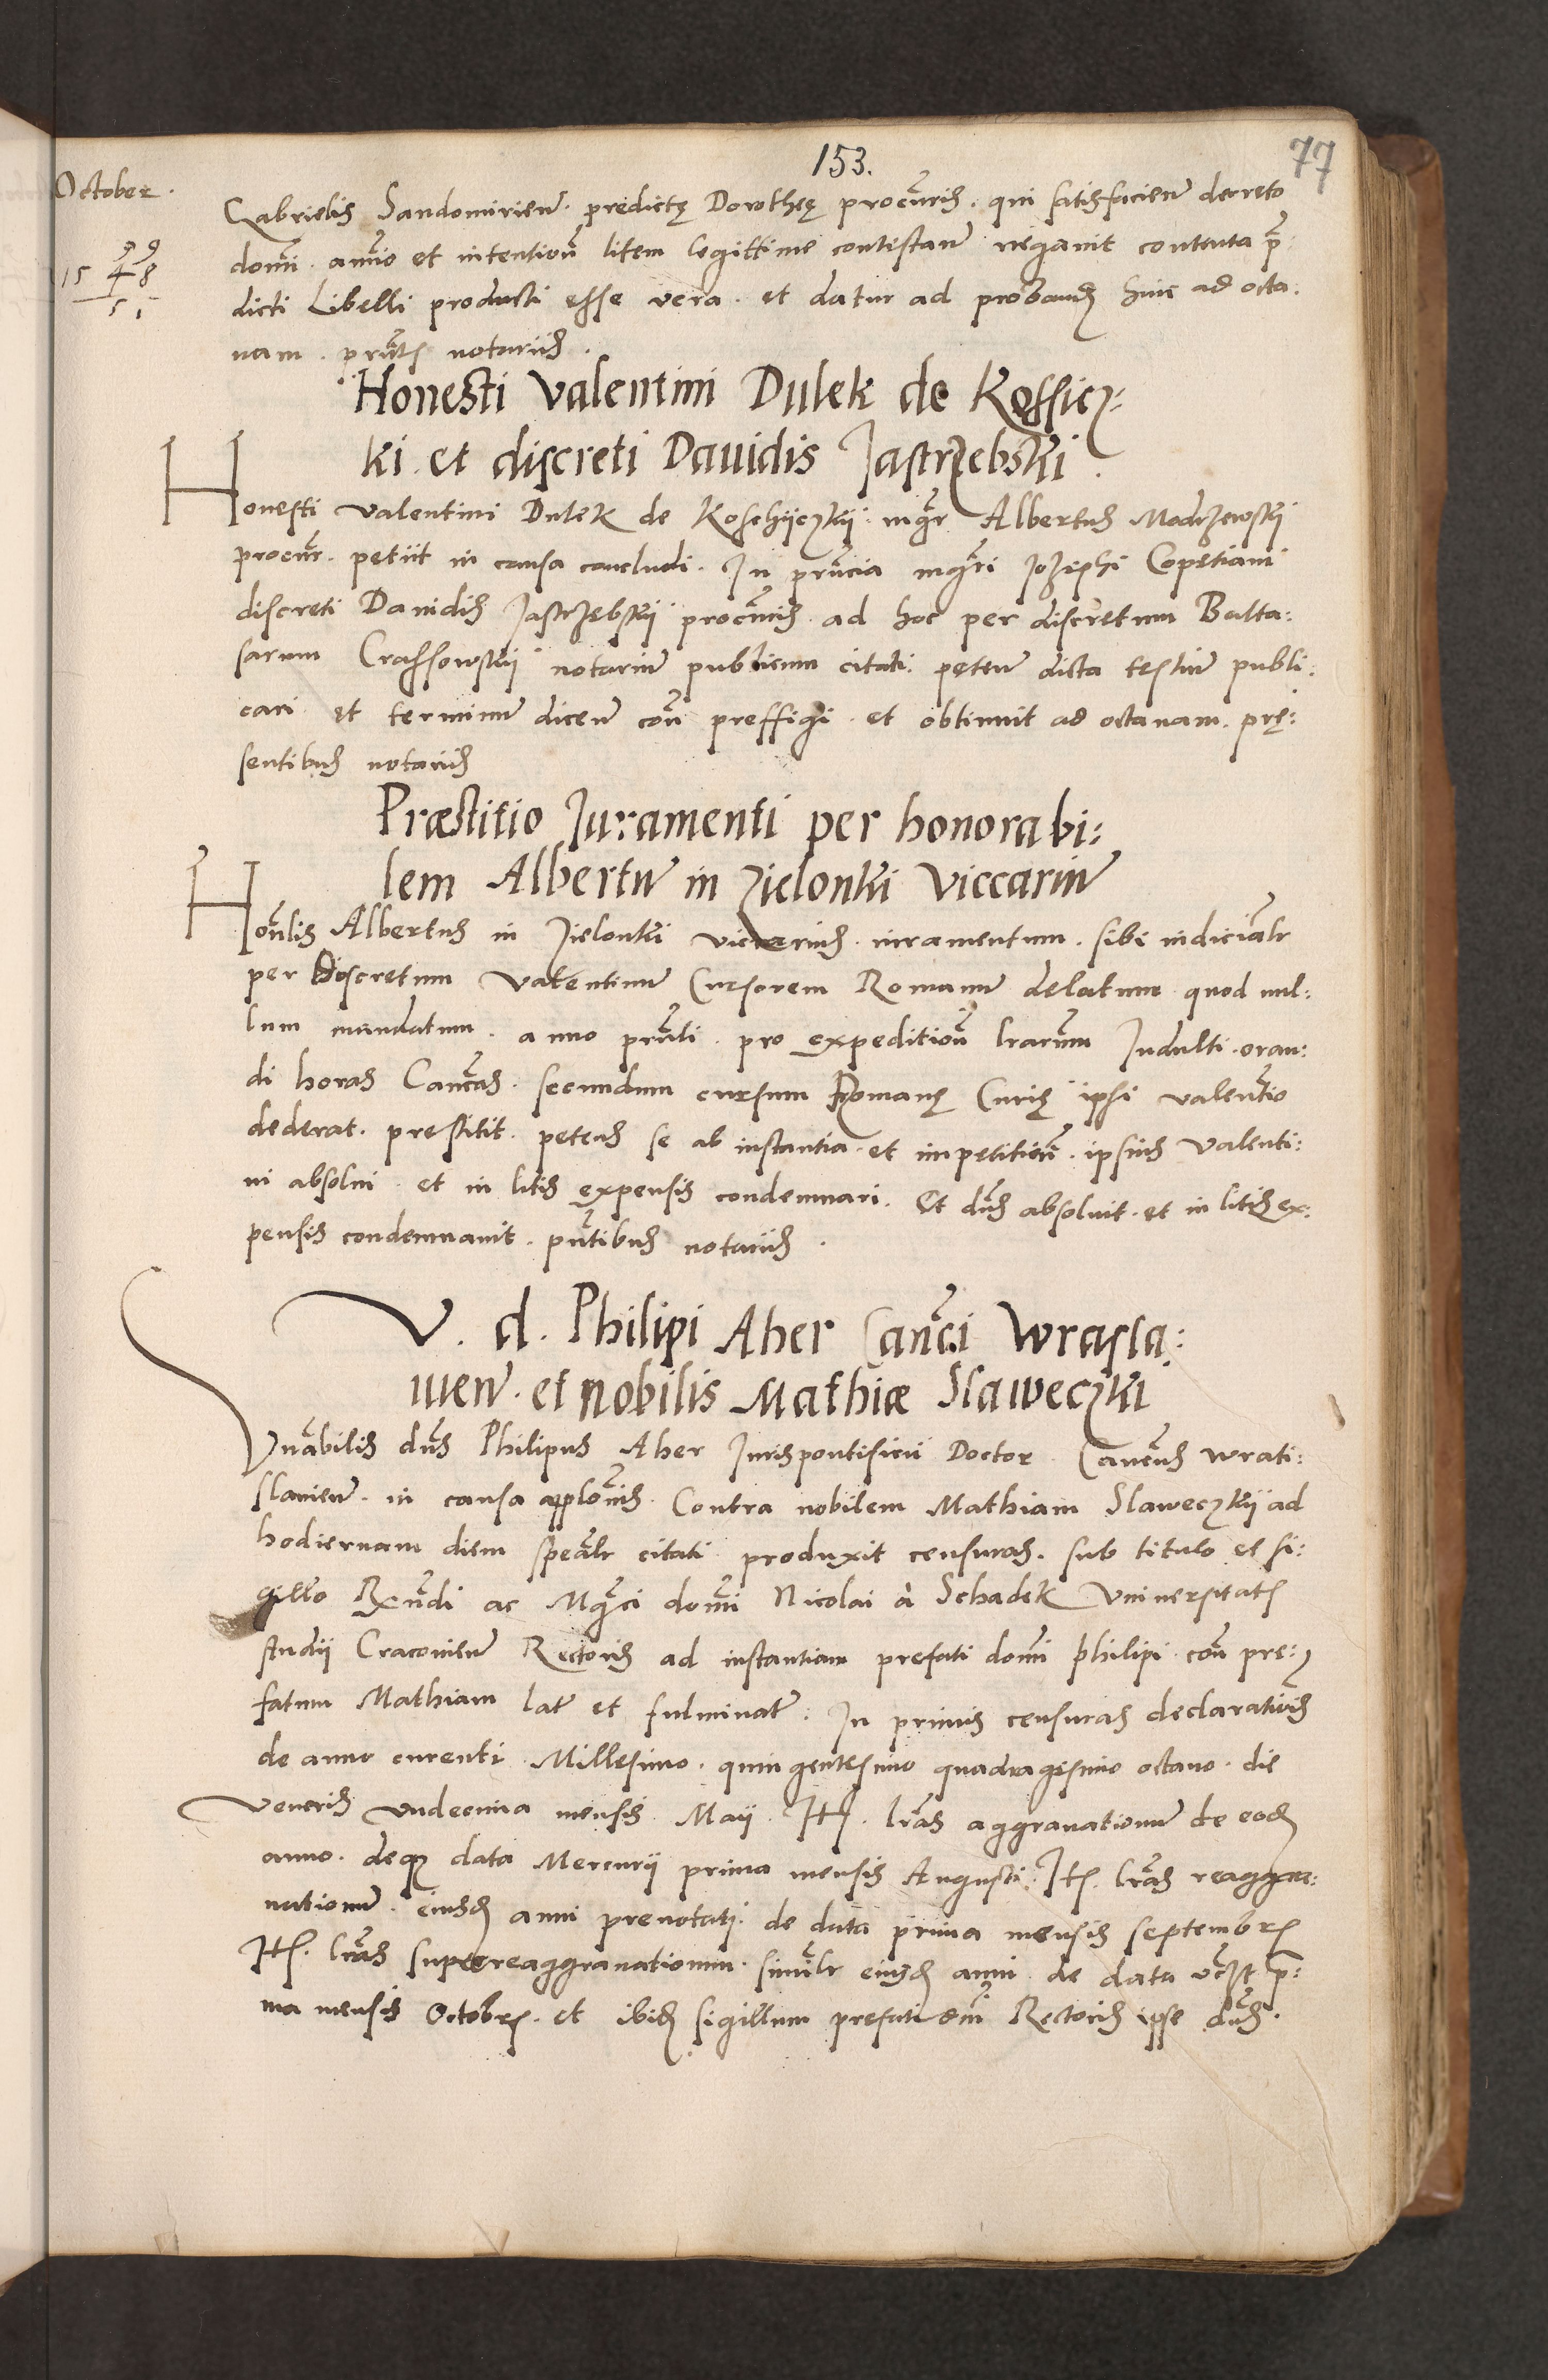 153.
77
October.
15 48
51
Gabrielis Sandomirien̄. predictę Dorotheę procūris. qui satisfacien̄ decreto
domī. animo et intentioñ litem legittime contestan̄ negauit contenta p̄
dicti Libelli producti esse vera. et datur ad proband hinc ad octa:
uam. pn̄tƺ notariis.
Honesti Valentini Dulek de Kossicz=
ki. et discreti Dauidis Jastrzebski.
Honesti Valentini Dulek de Koschiczkij. mg̃r Albertus Modrzewskij
procūr. petiit in causa concludi. In pn̄cia mgr̄i Jozephi Copetiani
discreti Dauidis Jastrzębskij procūris ad hoc per discretum Balta:
sarum Crassowskij notariū publicum citati. peten̄ dicta testiū publi:
cari et terminū dicen̄ coñ preffigi. et obtinuit ad octauam. prę:
sentibus notariis
Præstitio Juramenti per honorabi:
lem Albertū in Zielonki Viccariū
Honlis Albertus in Zielonki viccarius. iuramentum. sibi iudiciałr
per discretum Valentinū Cursorem Romanū delatum quod nul:
lum mandatum. anno pn̄ti. pro expeditioñ lrarum Indulti. oran:
di horas Cancas. secundum cursum Romanę Curię ipsi Valentio
dederat. prestitit. petens se ab instantia. et impetitioñ. ipsius Valenti:
ni absolui. et in litis expensis condemnari. Et dn̄s absoluit. et in litis ex:
pensis condemnauit. pn̄tibus notariis.
V. d. Philipi Aher Cancī Wrasla:
uien̄. et nobilis Mathiæ Slaweczki
Vnābilis dn̄s Philipus Aher Juris pontificii Doctor. Canēus Wrati:
slauien̄. in causa applonis. Contra nobilem Mathiam Slaweczkij ad
hodiernam diem speałr citati produxit censuras. sub titulo et si:
gillo Rxndi ac Mg̃ci domī Nicolai à Schadek Vniuersitatƺ
studii Cracouien̄ Rectoris ad instantiam prefati domī Philipi coñ pre:
fatum Mathiam lat̄ et fulminat̄. In primis censuras declaratiōis
de anno curenti Millesimo. quingentesimo quadragesimo octauo. die
Veneris vndecima mensis Maij. Itƺ. lrās aggrauationū de eod
anno. deq3 data Mercurii prima mensis Augusti. Itƺ. lrās reaggra:
uationū. eiusd anni prenotati. de data prima mensis septembrƺ
Itƺ. lrās superreaggrauationum. similr eiusd anni de data p̄:
ma mensis Octobrƺ. et ibid sigillum prefati dnī Rectoris ipse dn̄s.